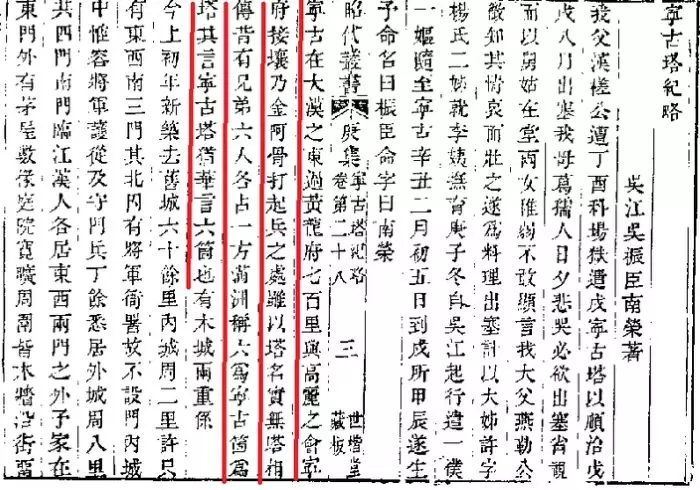 寧古塔紀略
吳江吳振臣南榮著
我父漢槎公遭丁酉科場獄遣戍寧古塔以順治戊
戌八月出塞我母葛孺人日夕悲哭必欲出塞省覲
而以舅姑在堂兩女稚弱不敢顯言我大父燕勒公
微知其情哀而壯之遂爲料理出塞計以大姊許字
楊氏二姊就李姨撫育庚子冬自吳江起行遣一僕
一嫗隨至寧古辛丑二月初五日到戍所甲辰遂生
予命名曰振臣命字曰南榮
昭代叢書
庚集
寧古塔紀略
卷第二十八
三
世楷堂
藏板
寧古在大漠之東過黃龍府七百里與高麗之會寧
府接壤乃金阿骨打起兵之處雖以塔名實無塔相
傳昔有兄弟六人各占一方滿洲稱六爲寧古箇爲
塔其言寧古塔猶華言六箇也有木城兩重係
今上初年新築去舊城六十餘里內城周二里許只
有東西南三門其北因有將軍衙署故不設門內城
中惟容將軍護從及守門兵丁餘悉居外城周八里
共四門南門臨江漢人各居東西兩門之外予家在
東門外有茅屋數椽庭院寬曠周圍皆木牆沿街留